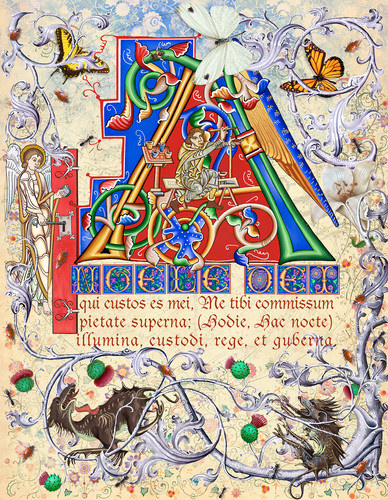 A
NGELE DEI
qui custos es mei, Me tibi commissum
pietate superna; (Hodie, Hac nocte)
illumina, custodi, rege, et guberna.